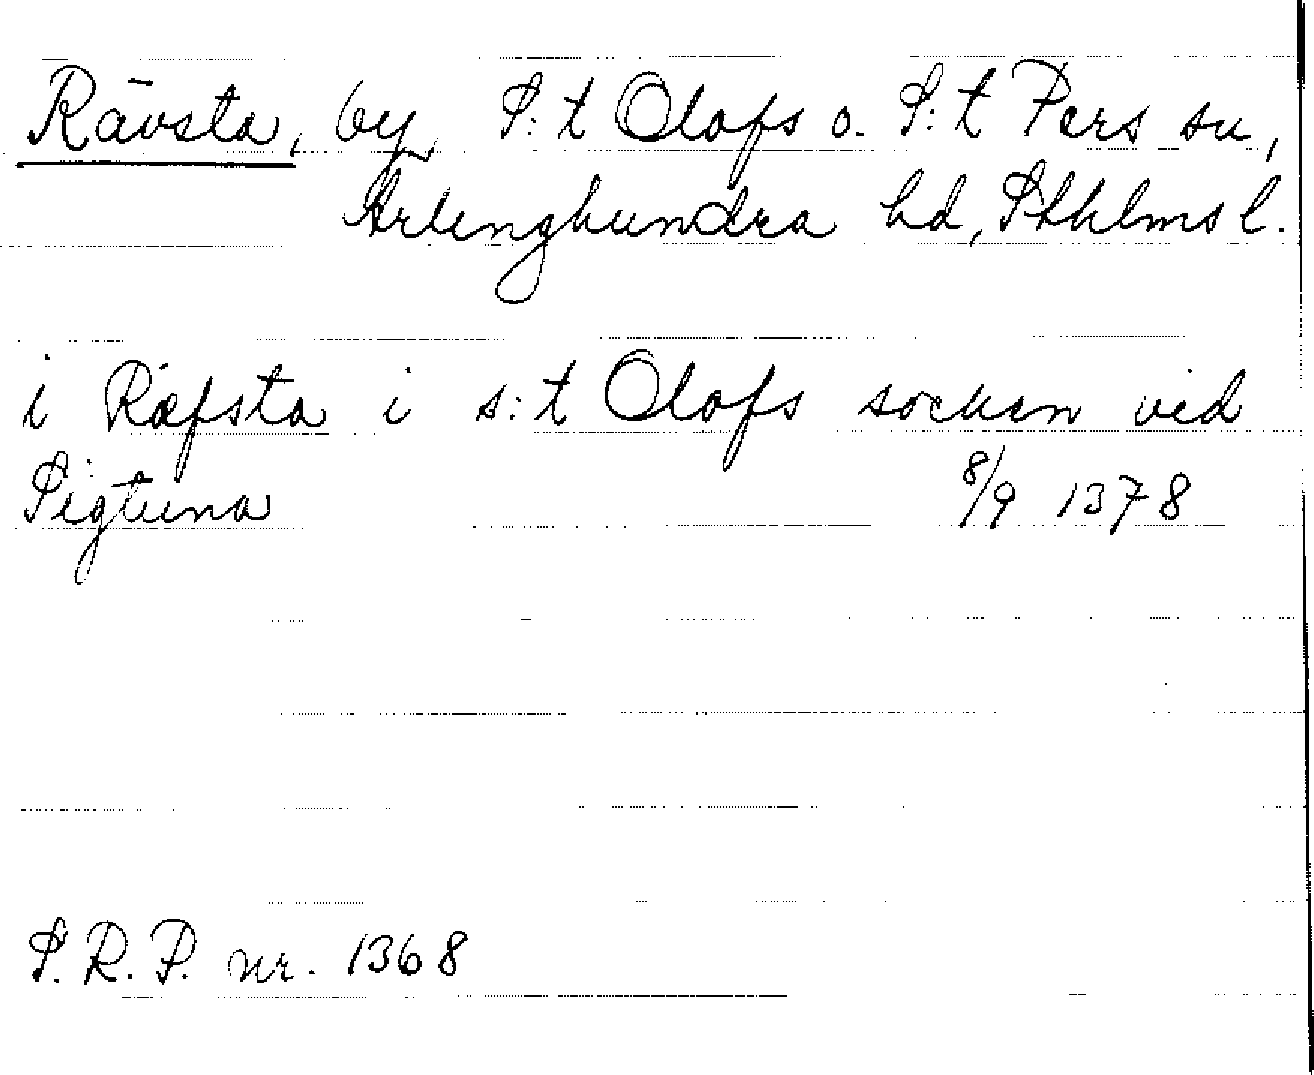 Rävsta, by, S:t Olofs o. S:t Pers sn,
Ärlinghundra hd, Sthlms l.
i Ræfsta i s:t Olofs socken vid
Sigtuna 8/9 1378
S.R.P. nr. 1368